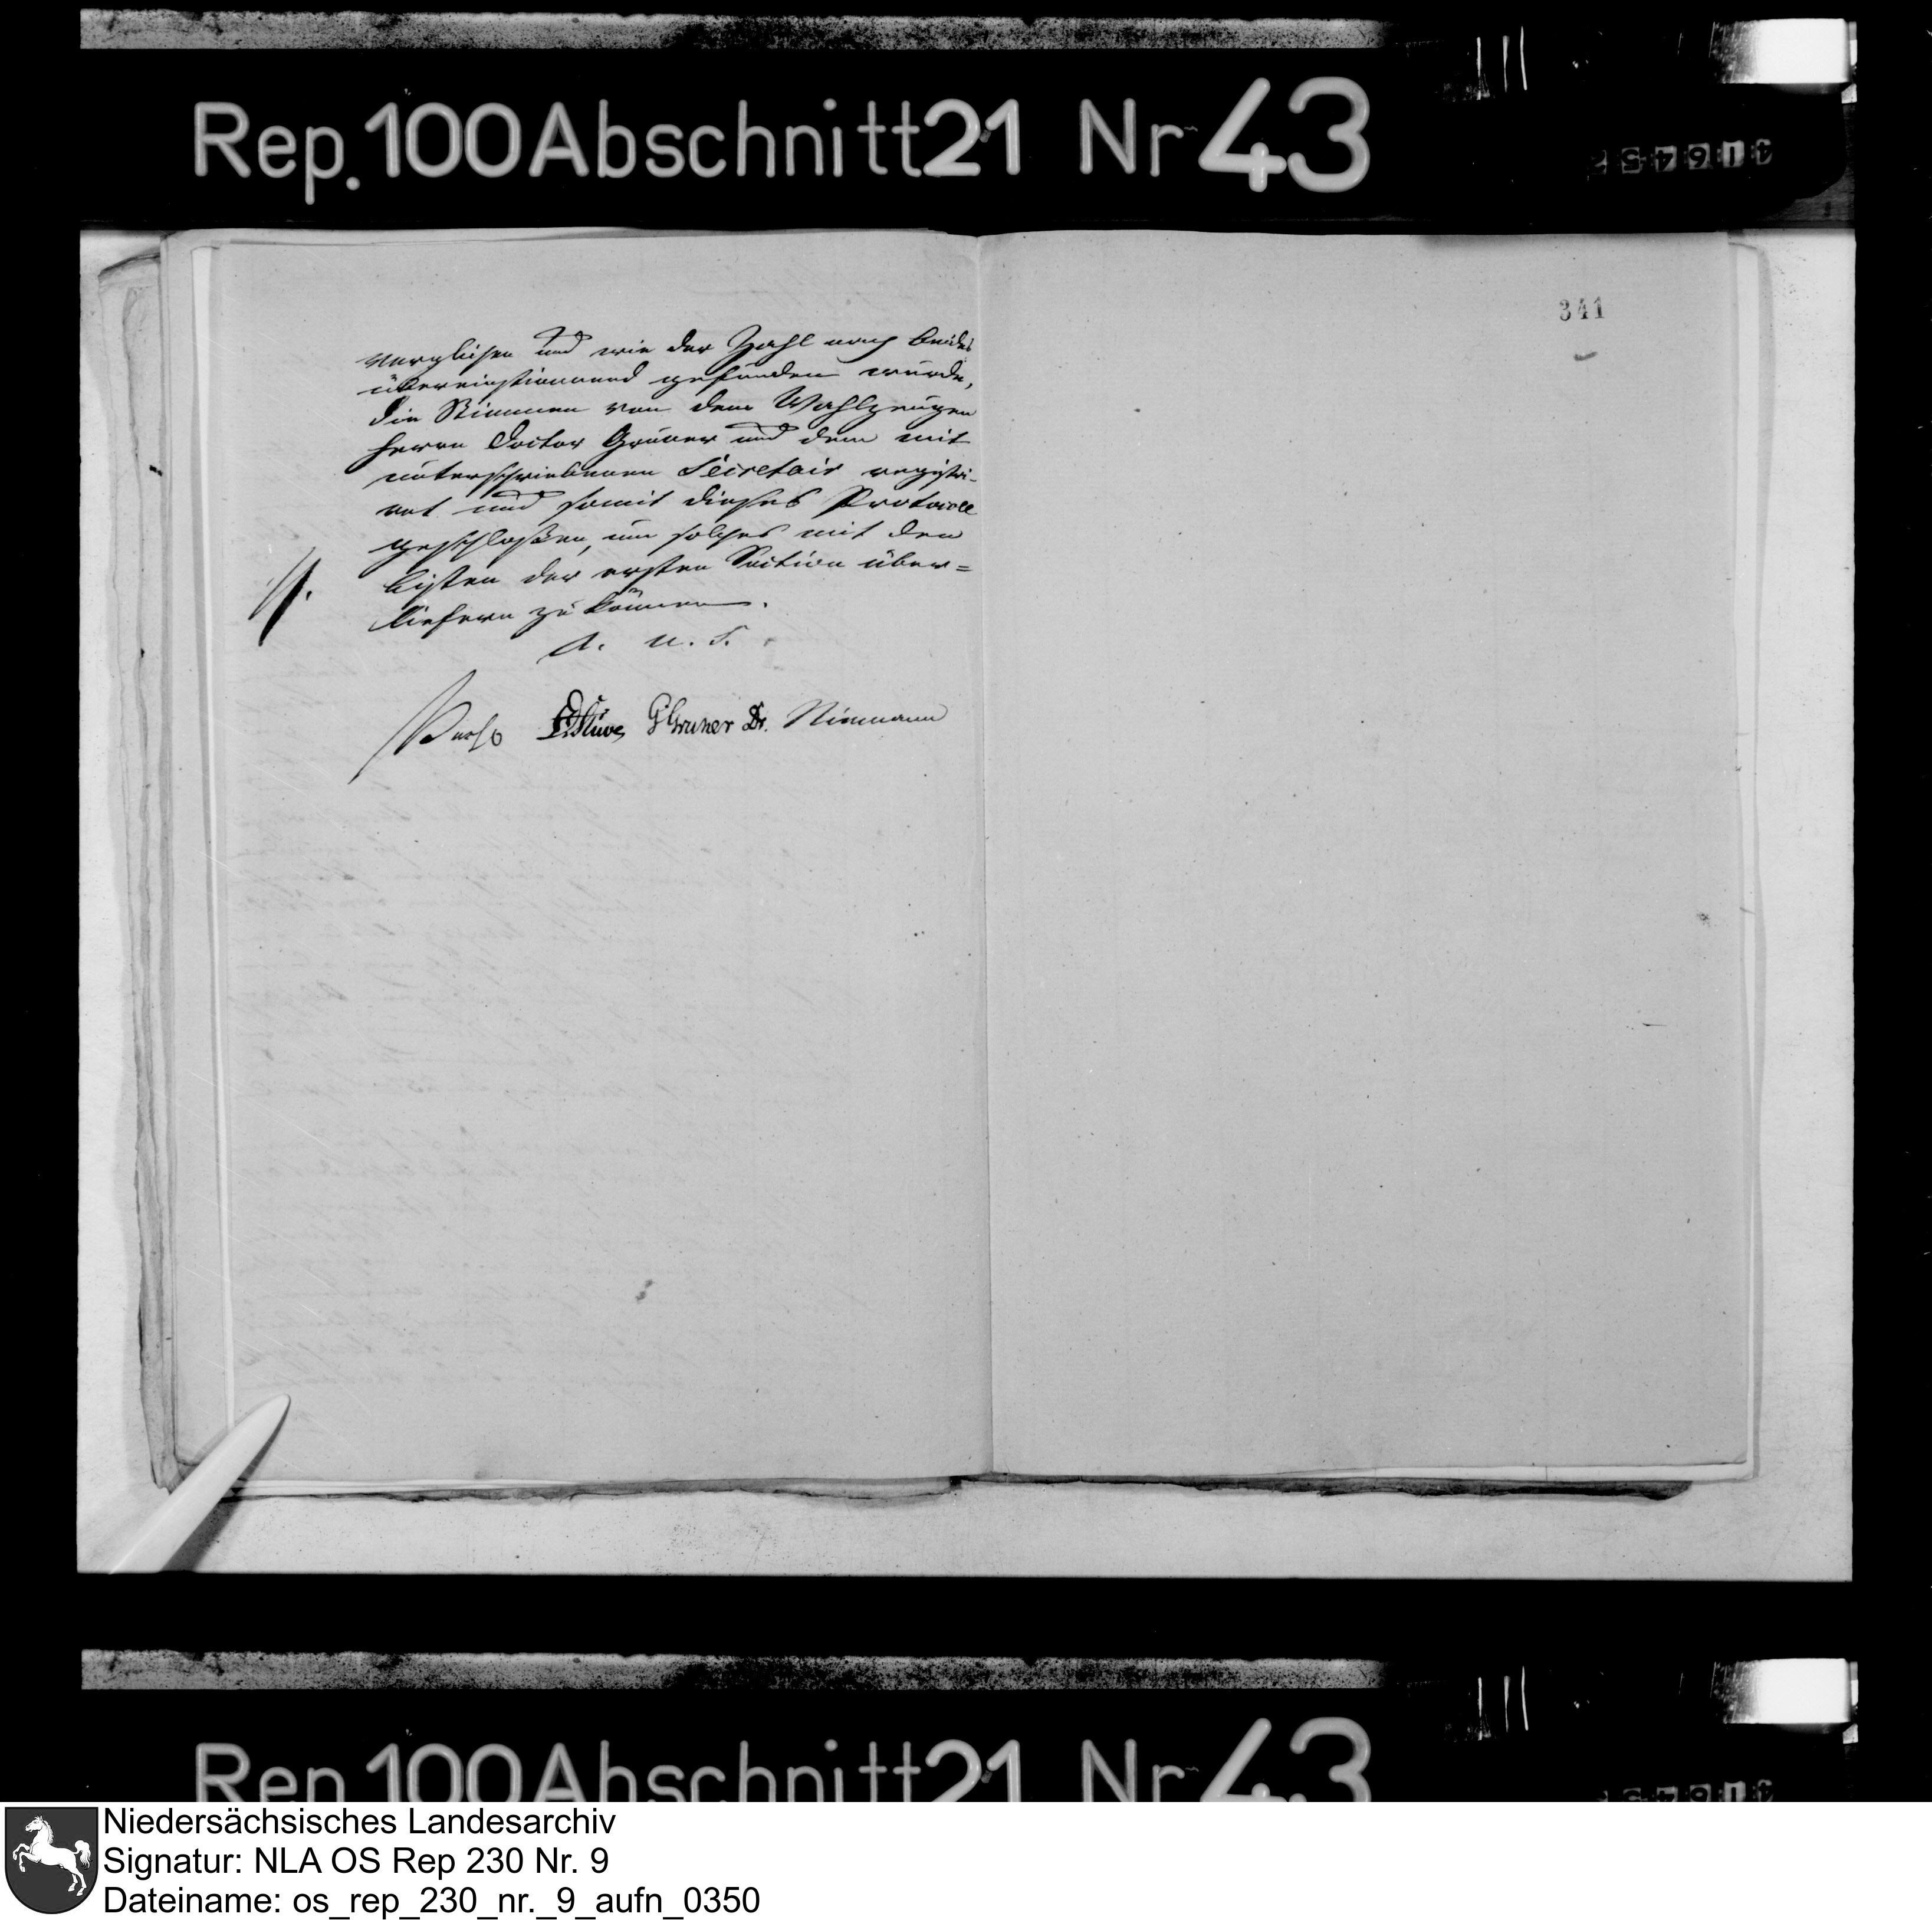 Rep. 100 Abschnitt 21 Nr 43
341
verglichen und wie der Zahl nach beides
übereinstimmend gefunden wurde,
die Stimmen von dem Wahlzeugen
Herrn Doctor Gruner und dem mit
unterschriebenen Secretair registri-
ret und somit dieses Protocoll
geschloßen, um solches mit den
Listen der ersten Section über=
liefern zu können.
A. u. S.
Stüve GGruner Dr. Niemann
Rep. 100 Abschnitt 21 Nr 43
Niedersächsisches Landesarchiv
Signatur: NLA OS Rep 230 Nr. 9
Dateiname: os_rep_230_nr._9_aufn_0350